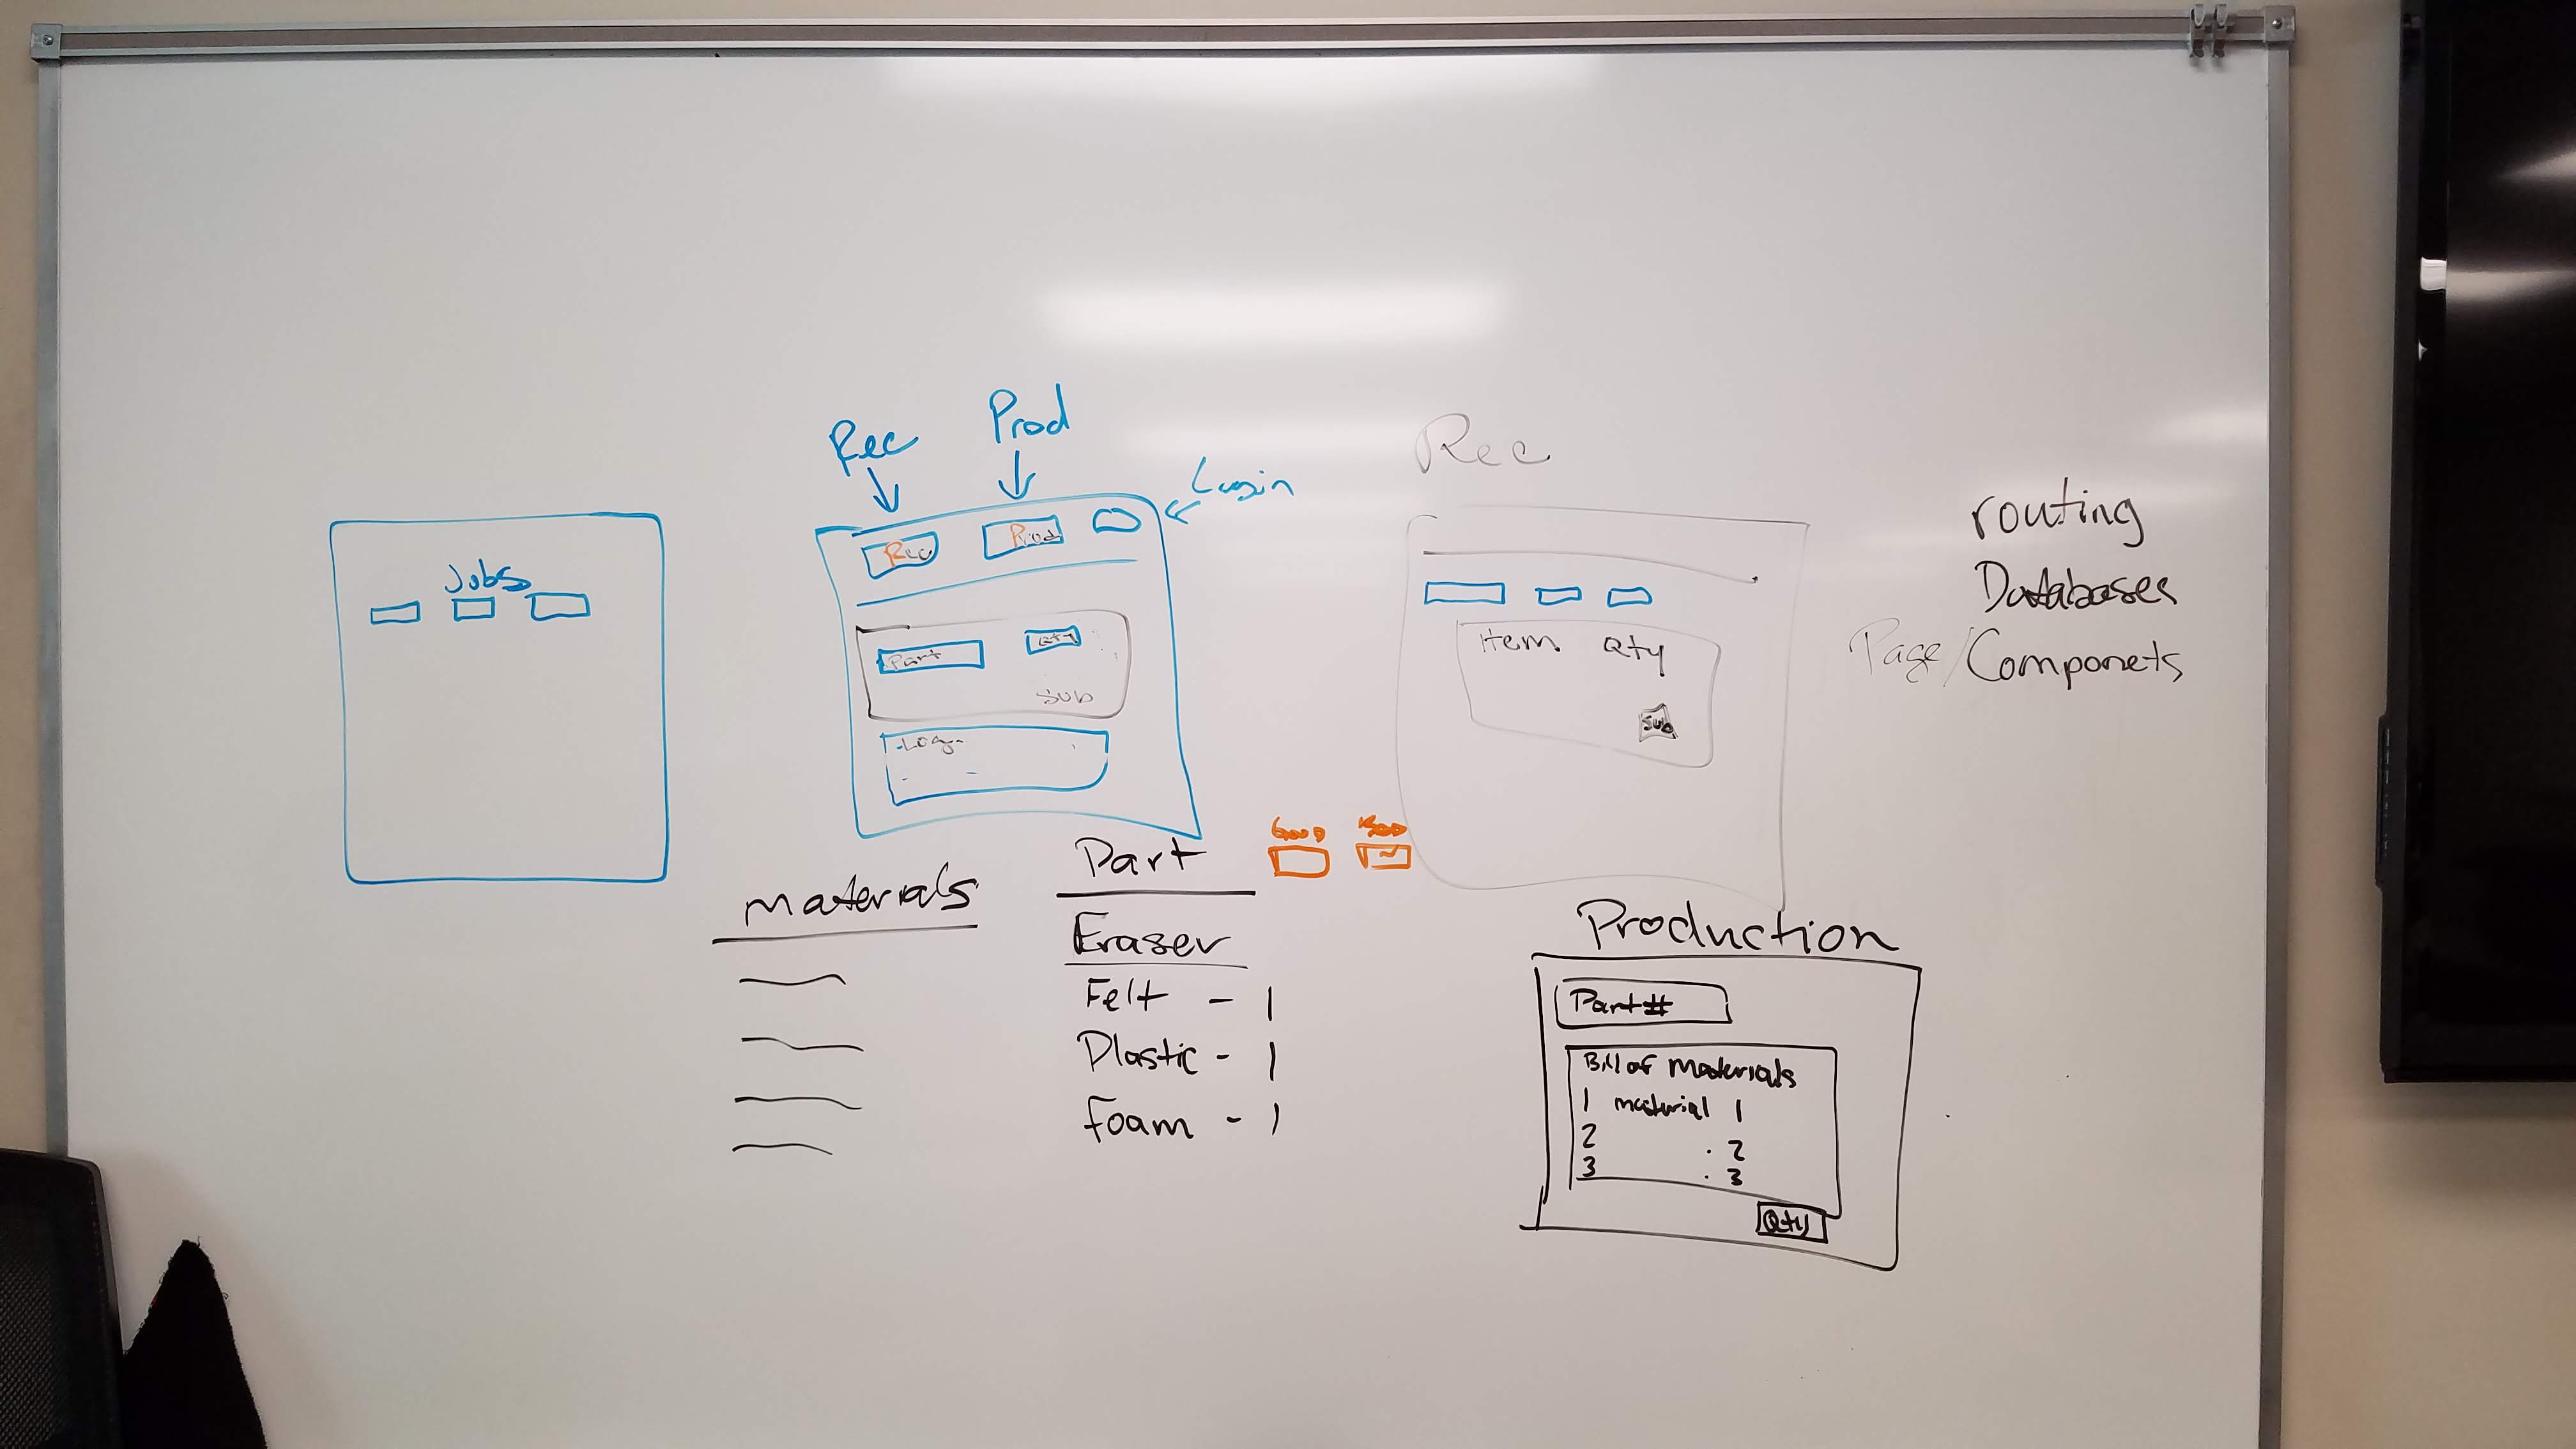 Jobs
Rec
Prod
Login
Rec
Prod
Part
Qty
Sub
Log
Rec
Item Qty
Sub
routing
Databases
Page/Componets
materials
Part
Eraser
Felt - 1
Plastic - 1
Foam - 1
Good
Production
Part#
Bill of Materials
1 material 1
2 . 2
3 . 3
Qty